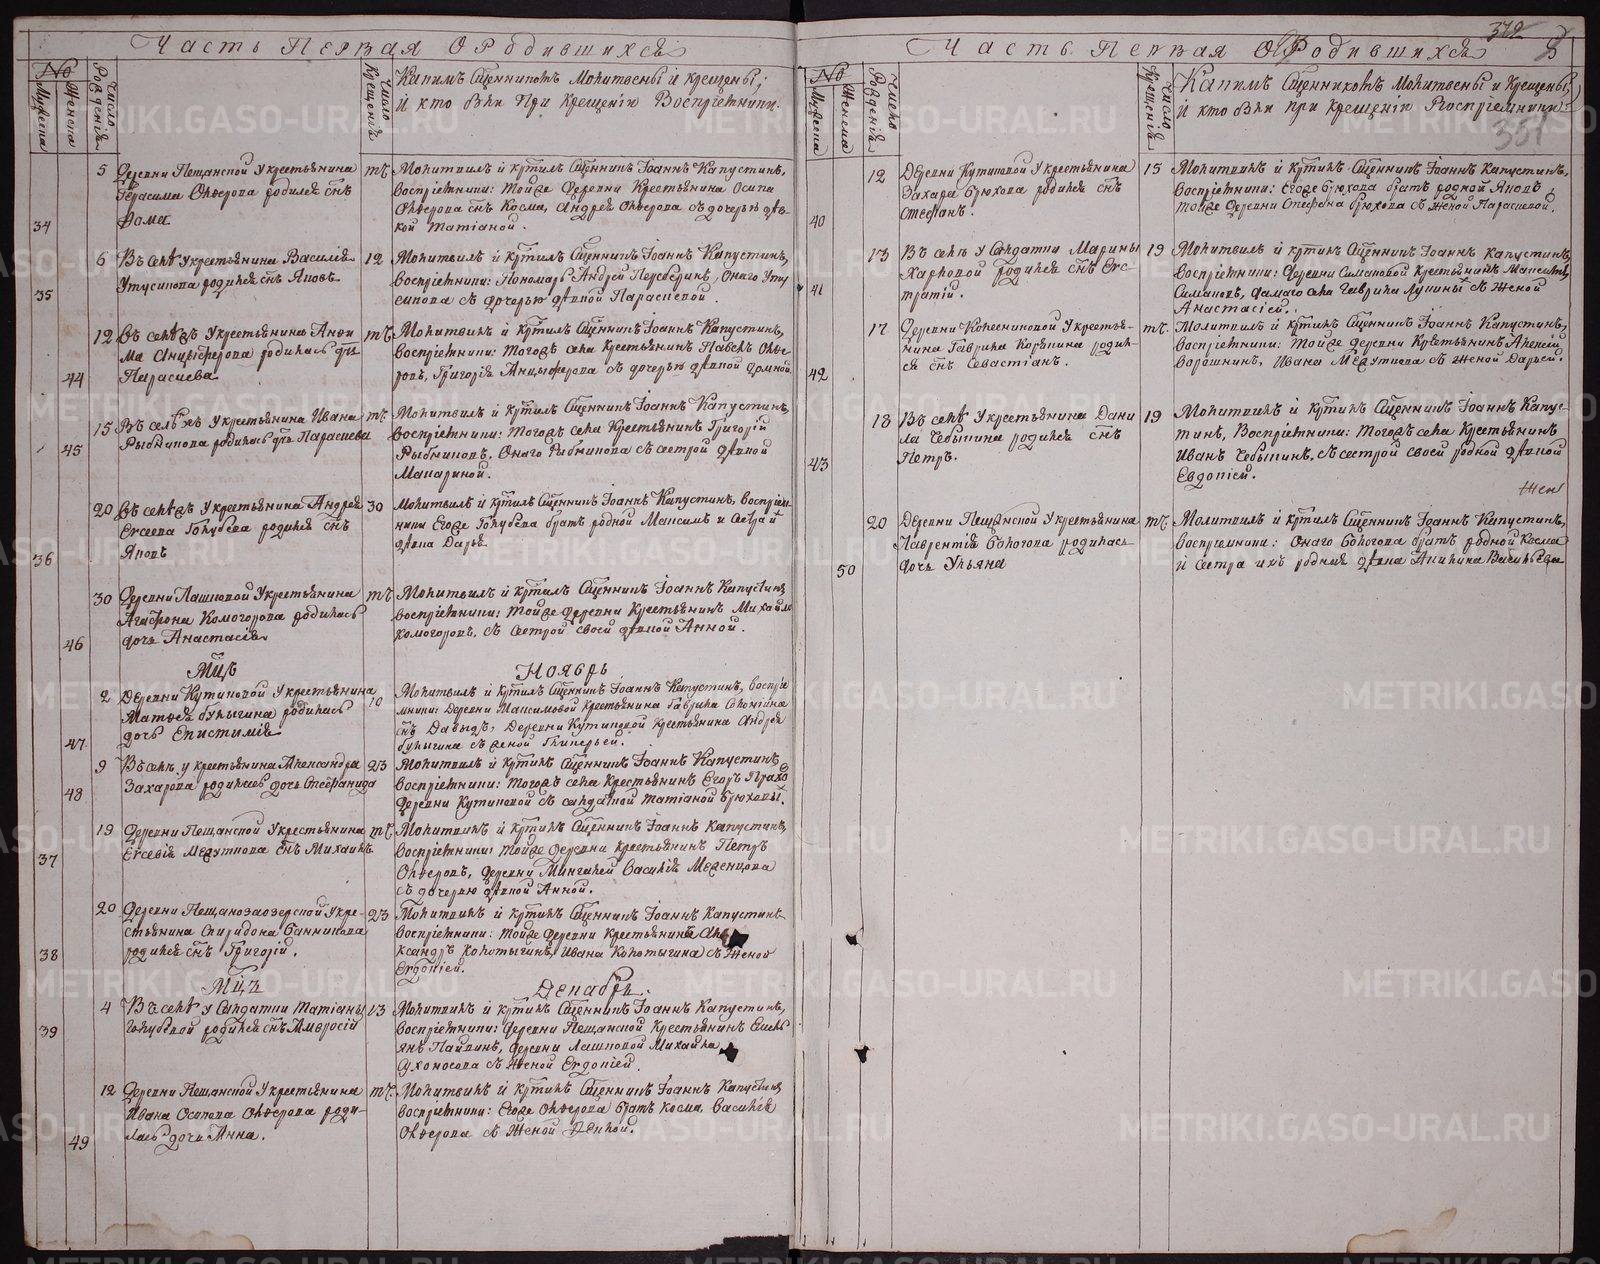 Часть Первая О Родившихся
№
Мужеска
Женска
Число Рожденія
Число Крещенія
Какимъ Сщенникомъ Молитвены и Крещены;
И кто Были При Крещеніи Воспріемники.
34
5
Деревни Пещанской У крестьянина
Герасима Олферова родился снъ
Фома
тѣ
Молитвилъ и крстилъ Сщенникъ Іоаннъ Капустинъ,
воспріемники: Тойже Деревни Крестьянина Осипа
Олферова снъ Косма, Андрея Олферова съ дочерью дѣв-
кой Татіаной.
35
6
Въ селѣ У крестьянина Василия
Утусикова родился снъ Яковъ
12
Молитвилъ и крстилъ Сщенникъ Іоаннъ Капустинъ,
воспріемники: Пономарь Андрей, онаго Уту
сикова съ дочерью дѣвкой Параскевой.
44
12
Въ селѣ У крестьянина
Анцыферова родилась дчь
Параскева
Молитвилъ и крстилъ Сщенникъ Іоаннъ Капустинъ,
воспріемники: Тогожъ села Крестьянинъ Павелъ Олфе-
ровъ, Григорія Анцыферова съ дочерью дѣвкой Домной
45
15
Въ селѣ У крестьянина Ивана
Рыбникова родилась дчь Параскева
Молитвилъ и крстилъ Сщенникъ Іоаннъ Капустинъ,
воспріемники: Тогожъ села Крестьянинъ Григорій
Рыбниковъ, Онаго Рыбникова съ сестрой дѣвкой
Макариной.
36
20
Въ селѣ У крестьянина Андрея
Голубева родился снъ
Яковъ
30
Молитвилъ и крстилъ Сщенникъ Іоаннъ Капустинъ, воспріем-
ники Егоже Голубева братъ родной Максимъ и Сестра
дѣвка Дарья
46
30
Деревни Лашковой У крестьянина
Агафона Комогорова родилась
дочь Анастасія
Молитвилъ и крстилъ Сщенникъ Іоаннъ Капустинъ
воспріемники: Тойже деревни Крестьянинъ Михайло
комогоровъ, съ Сестрой своей дѣвкой Анной.
Мцъ Ноябрь
47
2
Деревни Кутиковой У крестьянина
Матвѣя Булыгина родилась
дочь Епистимія
10
Молитвилъ и крстилъ Сщенникъ Іоаннъ Капустинъ, воспріе
мники: Деревни Максимовой Крестьянина Гаврила
снъ Давыдъ, Деревни Кутиковой Крестьянина Андрея
Булыгина съ женой Гликерьей.
48
9
Въ селѣ у крестьянина Александра
Захарова родилась дочь Стефанида
23
Молитвилъ и крстилъ Сщенникъ Іоаннъ Капустинъ
воспріемники: Тогожъ села Крестьянинъ Егоръ
деревни Кутиковой съ солдаткой Татіаной Брюховы.
37
19
Деревни Пещанской У крестьянина
Евсевія Межуткова снъ Михаилъ
Молитвилъ и крстилъ Сщенникъ Іоаннъ Капустинъ,
воспріемники: Тойже деревни Крестьянинъ Петръ
Олферовъ, деревни Василія Меженцова
съ дочерью дѣвкой Анной.
38
20
Деревни Пещанозаозерской У кре-
стьянина Спиридона Банникова
родился снъ Григорій.
23
Молитвилъ и крстилъ Сщенникъ Іоаннъ Капустинъ
воспріемники: Тойже деревни Крестьянинъ Але
ксандръ Колотыгинъ, Ивана Колотыгина съ Женой
Евдокіей.
Мцъ Декабрь.
39
4
Въ селѣ у Солдатки Татіаны
Голубевой родился снъ Амвросій
13
Молитвилъ и крстилъ Сщенникъ Іоаннъ Капустинъ,
воспріемники: деревни Пещанской Крестьянинъ Емель
янъ Пайвинъ, деревни Лашковой Михайла
Сухоносова съ Женой Евдокіей.
49
12
Деревни Пещанской У крестьянина
Ивана Осипова Олферова роди-
лась дочь Анна.
Молитвилъ и крстилъ Сщенникъ Іоаннъ Капустинъ
воспріемники: Егоже Олферова братъ Косма, Василія
Олферова съ Женой.
372
Часть Первая О Родившихся
№
Мужеска
Женска
Число Рожденія
Число Крещенія
Какимъ Сщенникомъ Молитвены и Крещены,
И кто Были при Крещеніи Воспріемники
351
40
12
Деревни Кутиковой У крестьянина
Захара Брюхова родился снъ
Стефанъ.
15
Молитвилъ и крстилъ Сщенникъ Іоаннъ Капустинъ,
воспріемники: Егоже Брюхова братъ родной Яковъ,
Тойже Деревни Стефана Брюхова съ Женой Параскевой.
41
13
Въ селѣ у Солдатки Марины
Карповой родился снъ Евс-
тратій.
19
Молитвилъ и крстилъ Сщенникъ Іоаннъ Капустинъ,
воспріемники: Деревни Симановой Крестьянинъ
Симановъ, самаго села Гаврила Лукины съ Женой
Анастасіей.
42
17
Деревни У крестья-
нина Гаврила Корякина родил-
ся снъ Севастіанъ.
Молитвилъ и крстилъ Сщенникъ Іоаннъ Капустинъ,
воспріемники: Тойже деревни Крестьянинъ Алексей
Ворошнинъ, Ивана Межуткова съ Женой Дарьей.
43
18
Въ селѣ У крестьянина Дани
ла Чебыкина родился снъ
Петръ.
19
Молитвилъ и крстилъ Сщенникъ Іоаннъ Капус-
тинъ, Воспріемники: Тогожъ села Крестьянинъ
Иванъ Чебыкинъ, съ сестрой своей родной дѣвкой
Евдокіей.
Жен
50
20
Деревни Пещанской У крестьянина
Лаврентія Боногова родилась
дочь Ульяна
Молитвилъ и крстилъ Сщенникъ Іоаннъ Капустинъ,
воспріемники: Онаго Боногова братъ родной Косма
и Сестра ихъ родная дѣвка
METRIKI.GASO-URAL.RU